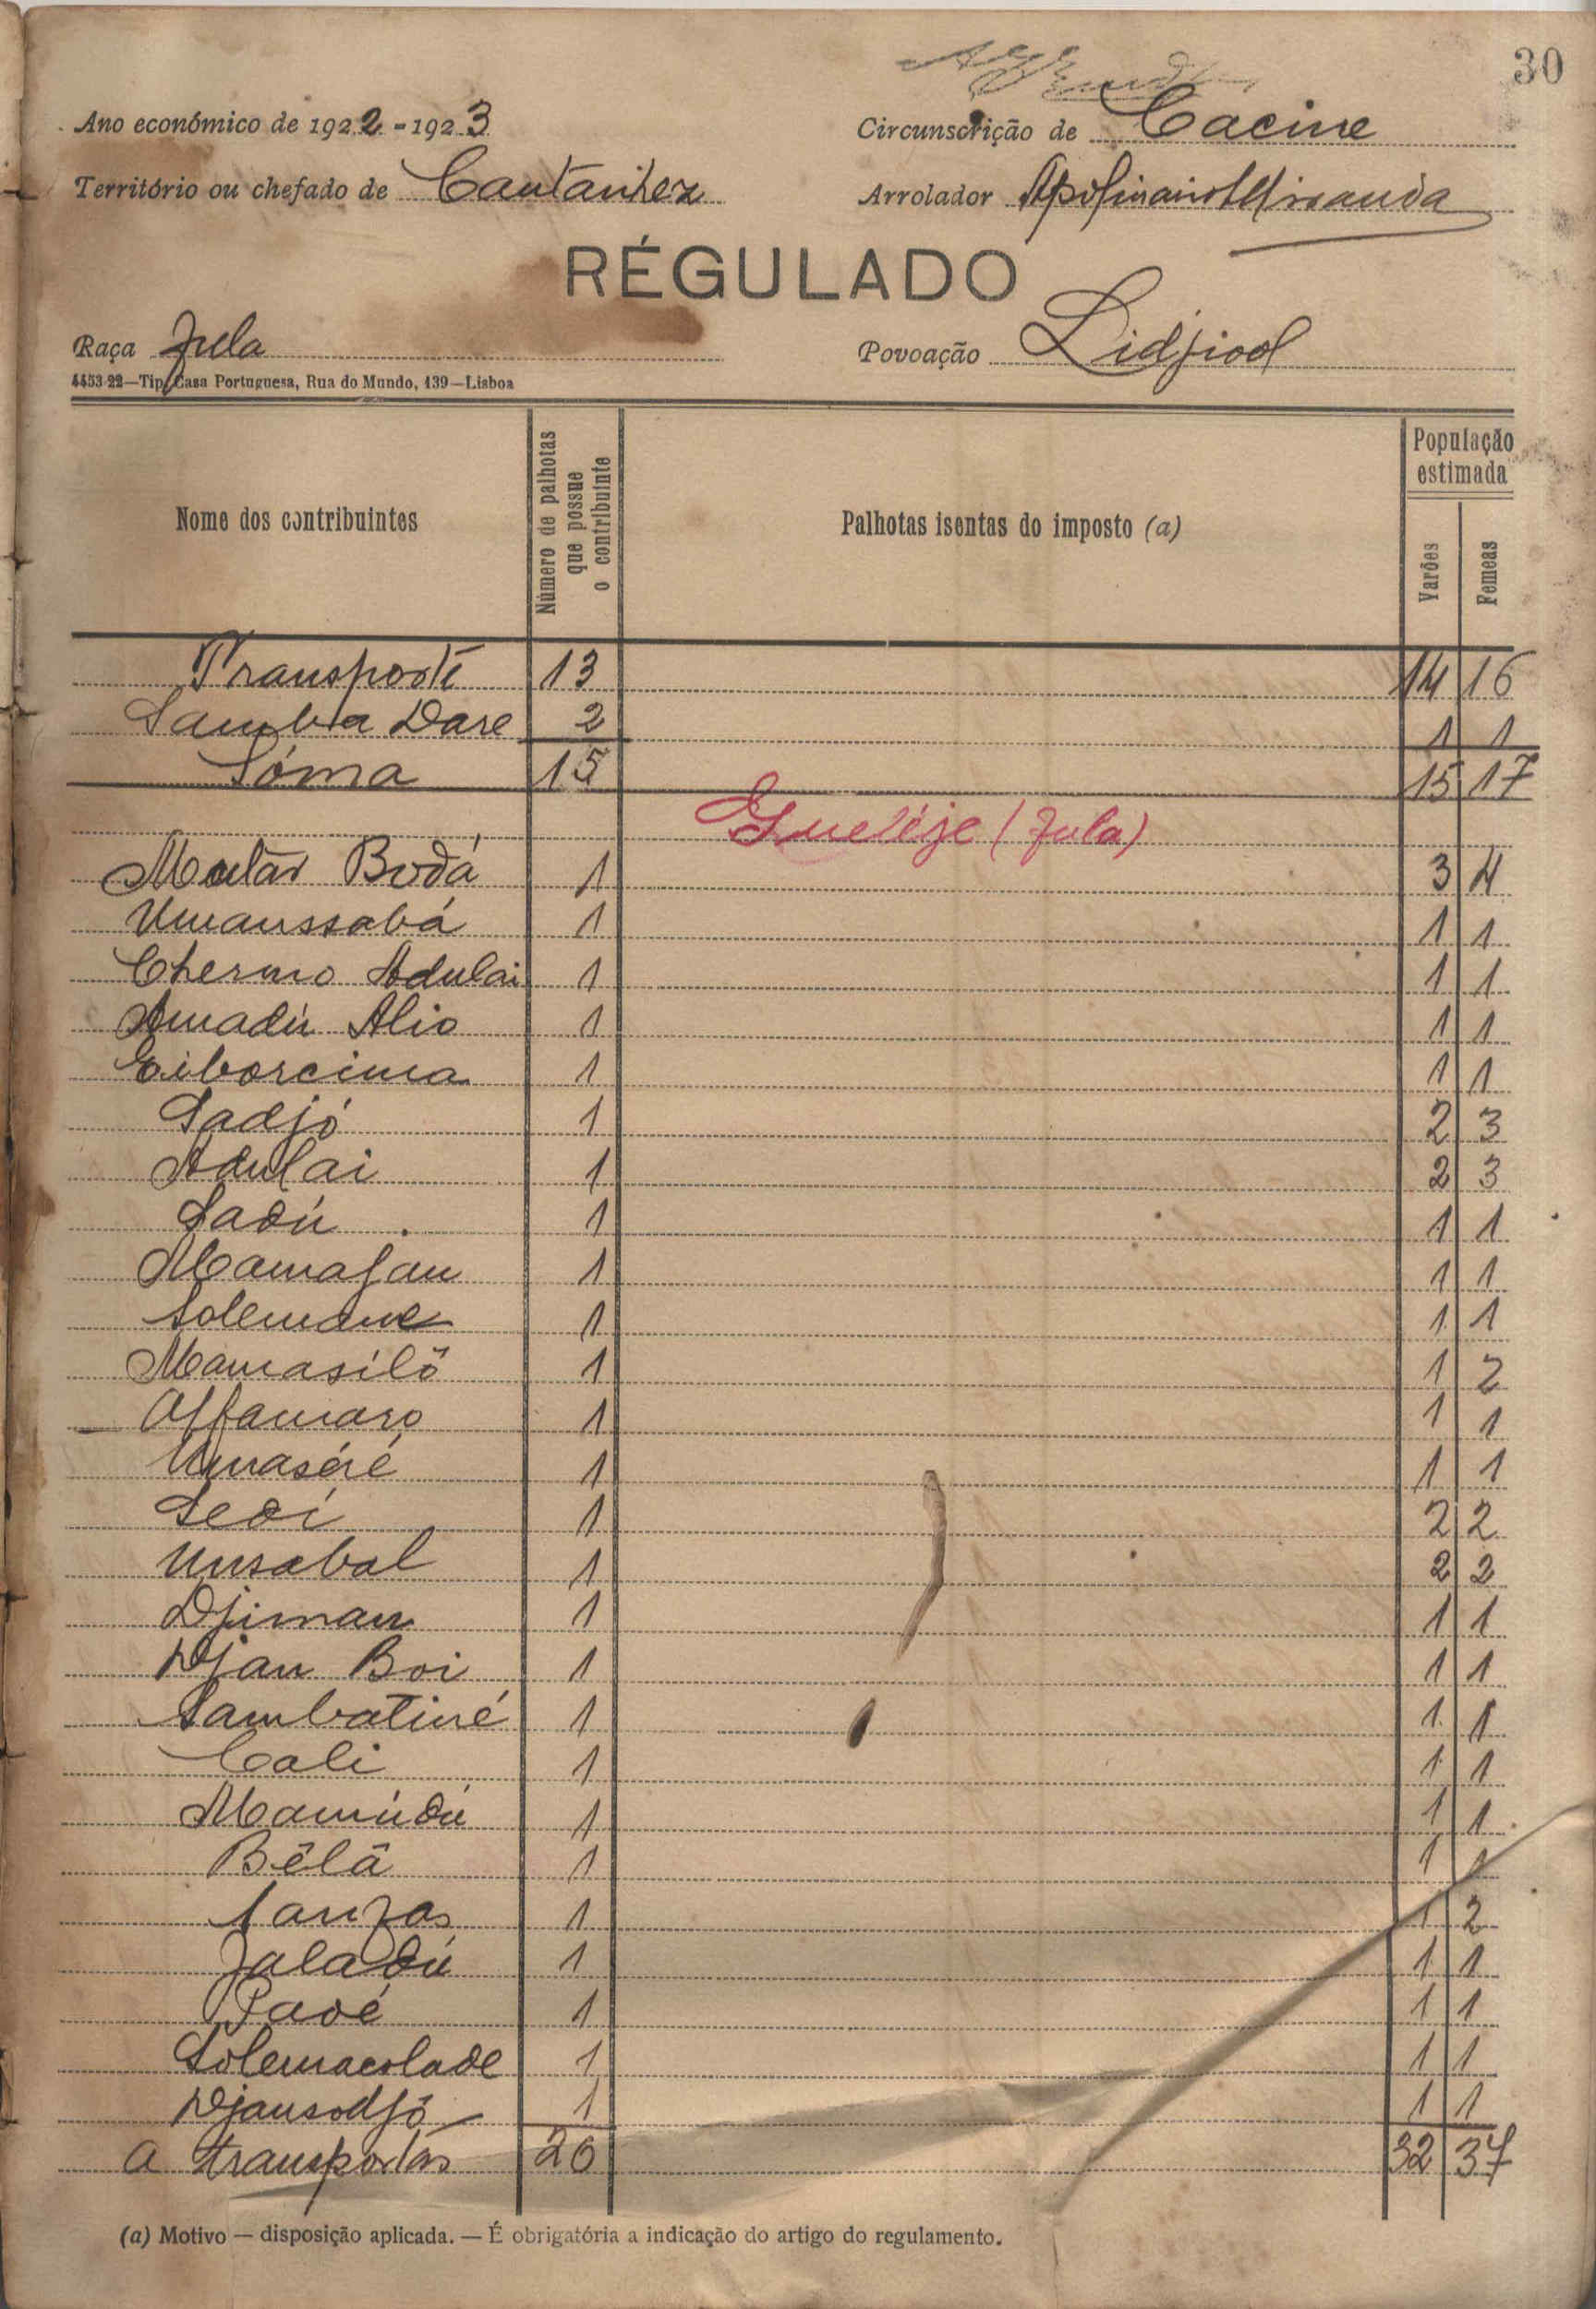 30
Ano económico de 1922-1923
Circunscrição de Cacine
Território ou chefado de Cantanhez
Arrolador Apolinario Miranda
RÉGULADO
Raça Fula
Povoação Lidjiool
4453-22—Tip. Casa Portuguesa, Rua do Mundo, 139—Lisboa
Nome dos contribuintes Número de palhotas que possue o contribuinte Palhotas isentas do imposto (a) População estimada Varões Femeas
Transporte 13 14 16
Samba Dare 2 1 1
Sóma 15 15 17
Gueléje (Fula)
Mutar Bodá 1 3 4
Umaussabá 1 1 1
Cherno Adulai 1 1 1
Amadú Alio 1 1 1
Eiborcima 1 1 1
Sadjó 1 2 3
Adulai 1 2 3
Sadú 1 1 1
Mamasau 1 1 1
Solemane 1 1 1
Mamasiló 1 1 2
Alfamaro 1 1 1
Umaséré 1 1 1
Sedí 1 2 2
Umsabal 1 2 2
Djiman 1 1 1
Djau Boi 1 1 1
Sambatiné 1 1 1
Cali 1 1 1
Mamúdú 1 1 1
Bêlâ 1 1 1
1 1 2
Faladú 1 1 1
Pavé 1 1 1
Solemacolade 1 1 1
Djausodjó 1 1 1
A transportar 26 32 37
(a) Motivo — disposição aplicada. — É obrigatória a indicação do artigo do regulamento.